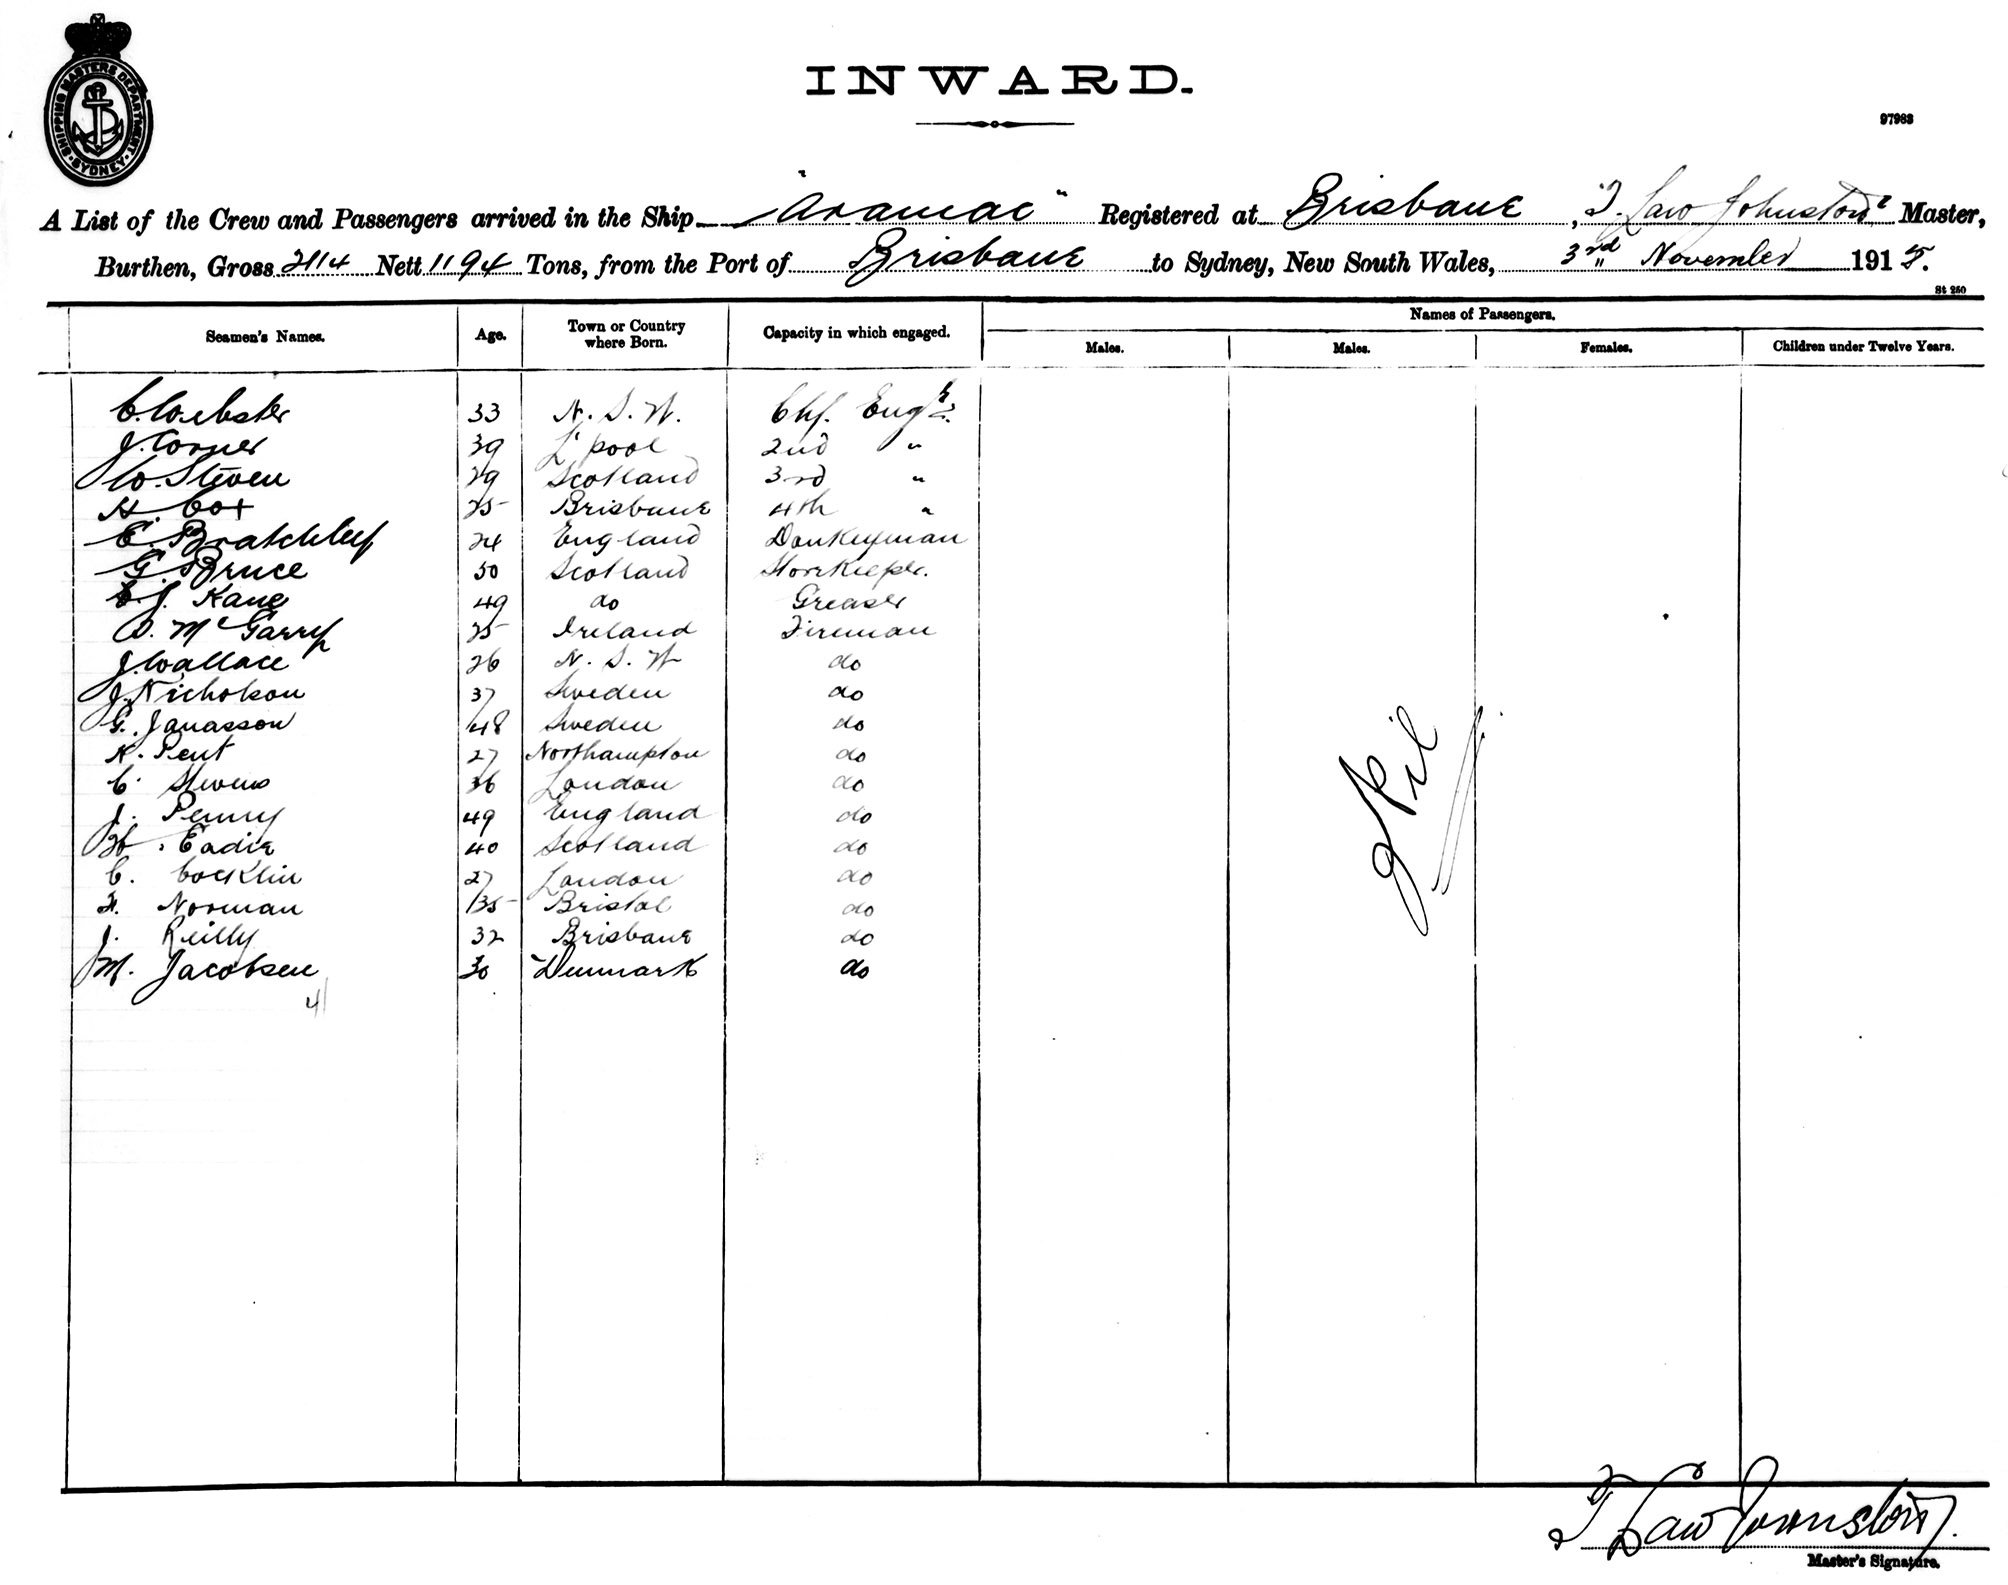 SHIPPING MASTERS DEPARTMENT · SYDNEY ·
INWARD.
97983
A List of the Crew and Passengers arrived in the Ship "Aramac" Registered at Brisbane, T. Law Johnston Master,
Burthen, Gross 2114 Nett 1194 Tons, from the Port of Brisbane to Sydney, New South Wales, 3rd November 1915.
St 250
Seamen's Names. Age. Town or Country where Born. Capacity in which engaged. Names of Passengers.
Males. Males. Females. Children under Twelve Years.
C. Webster 33 N. S. W. Chf. Engr.
J. Corner 39 L'pool 2nd "
W. Steven 29 Scotland 3rd "
H. Cox 25 Brisbane 4th "
E. Bratchley 24 England Donkeyman
G. Bruce 50 Scotland Storekeeper.
J. Kane 49 do Greaser
D. McGarry 25 Ireland Fireman
J. Wallace 26 N. S. W do
J. Nicholson 37 Sweden do
G. Janasson 48 Sweden do
K. Pent 27 Northampton do
C. Stevens 36 London do
J. Penny 49 England do
W. Eadie 40 Scotland do
C. Cocklin 27 London do
F. Norman 35 Bristol do
J. Reilly 32 Brisbane do
M. Jacobsen 30 Denmark do
41
Nil
T Law Johnston.
Master's Signature.